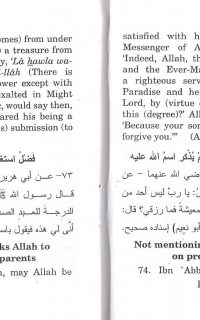 omes) from under
) a treasure from
y, 'Lâ hawla wa-
l-llâh (There is
ower except with
xalted in Might
, would say then,
ared his being a
s) submission (to
فضل استغف
٧٣- عن أبي هرير
قال رسول الله
الدرجة للعبد الص
لي هذه فيقول باس
ks Allah to
parents
n, may Allah be
satisfied with h
Messenger of A
'Indeed, Allah, th
and the Ever-Ma
a righteous serv
Paradise and he
Lord, by (virtue o
this (degree)?' All
'Because your son
forgive you.'" (An
م يذكر اسم الله عليه
رضي الله عنهما - عن
: يا رب ليس أحد من
معيشة فما رزقي؟ قال:
أبو نعيم) إسناده صحيح.
Not mentioning
on pro
74. Ibn 'Abb